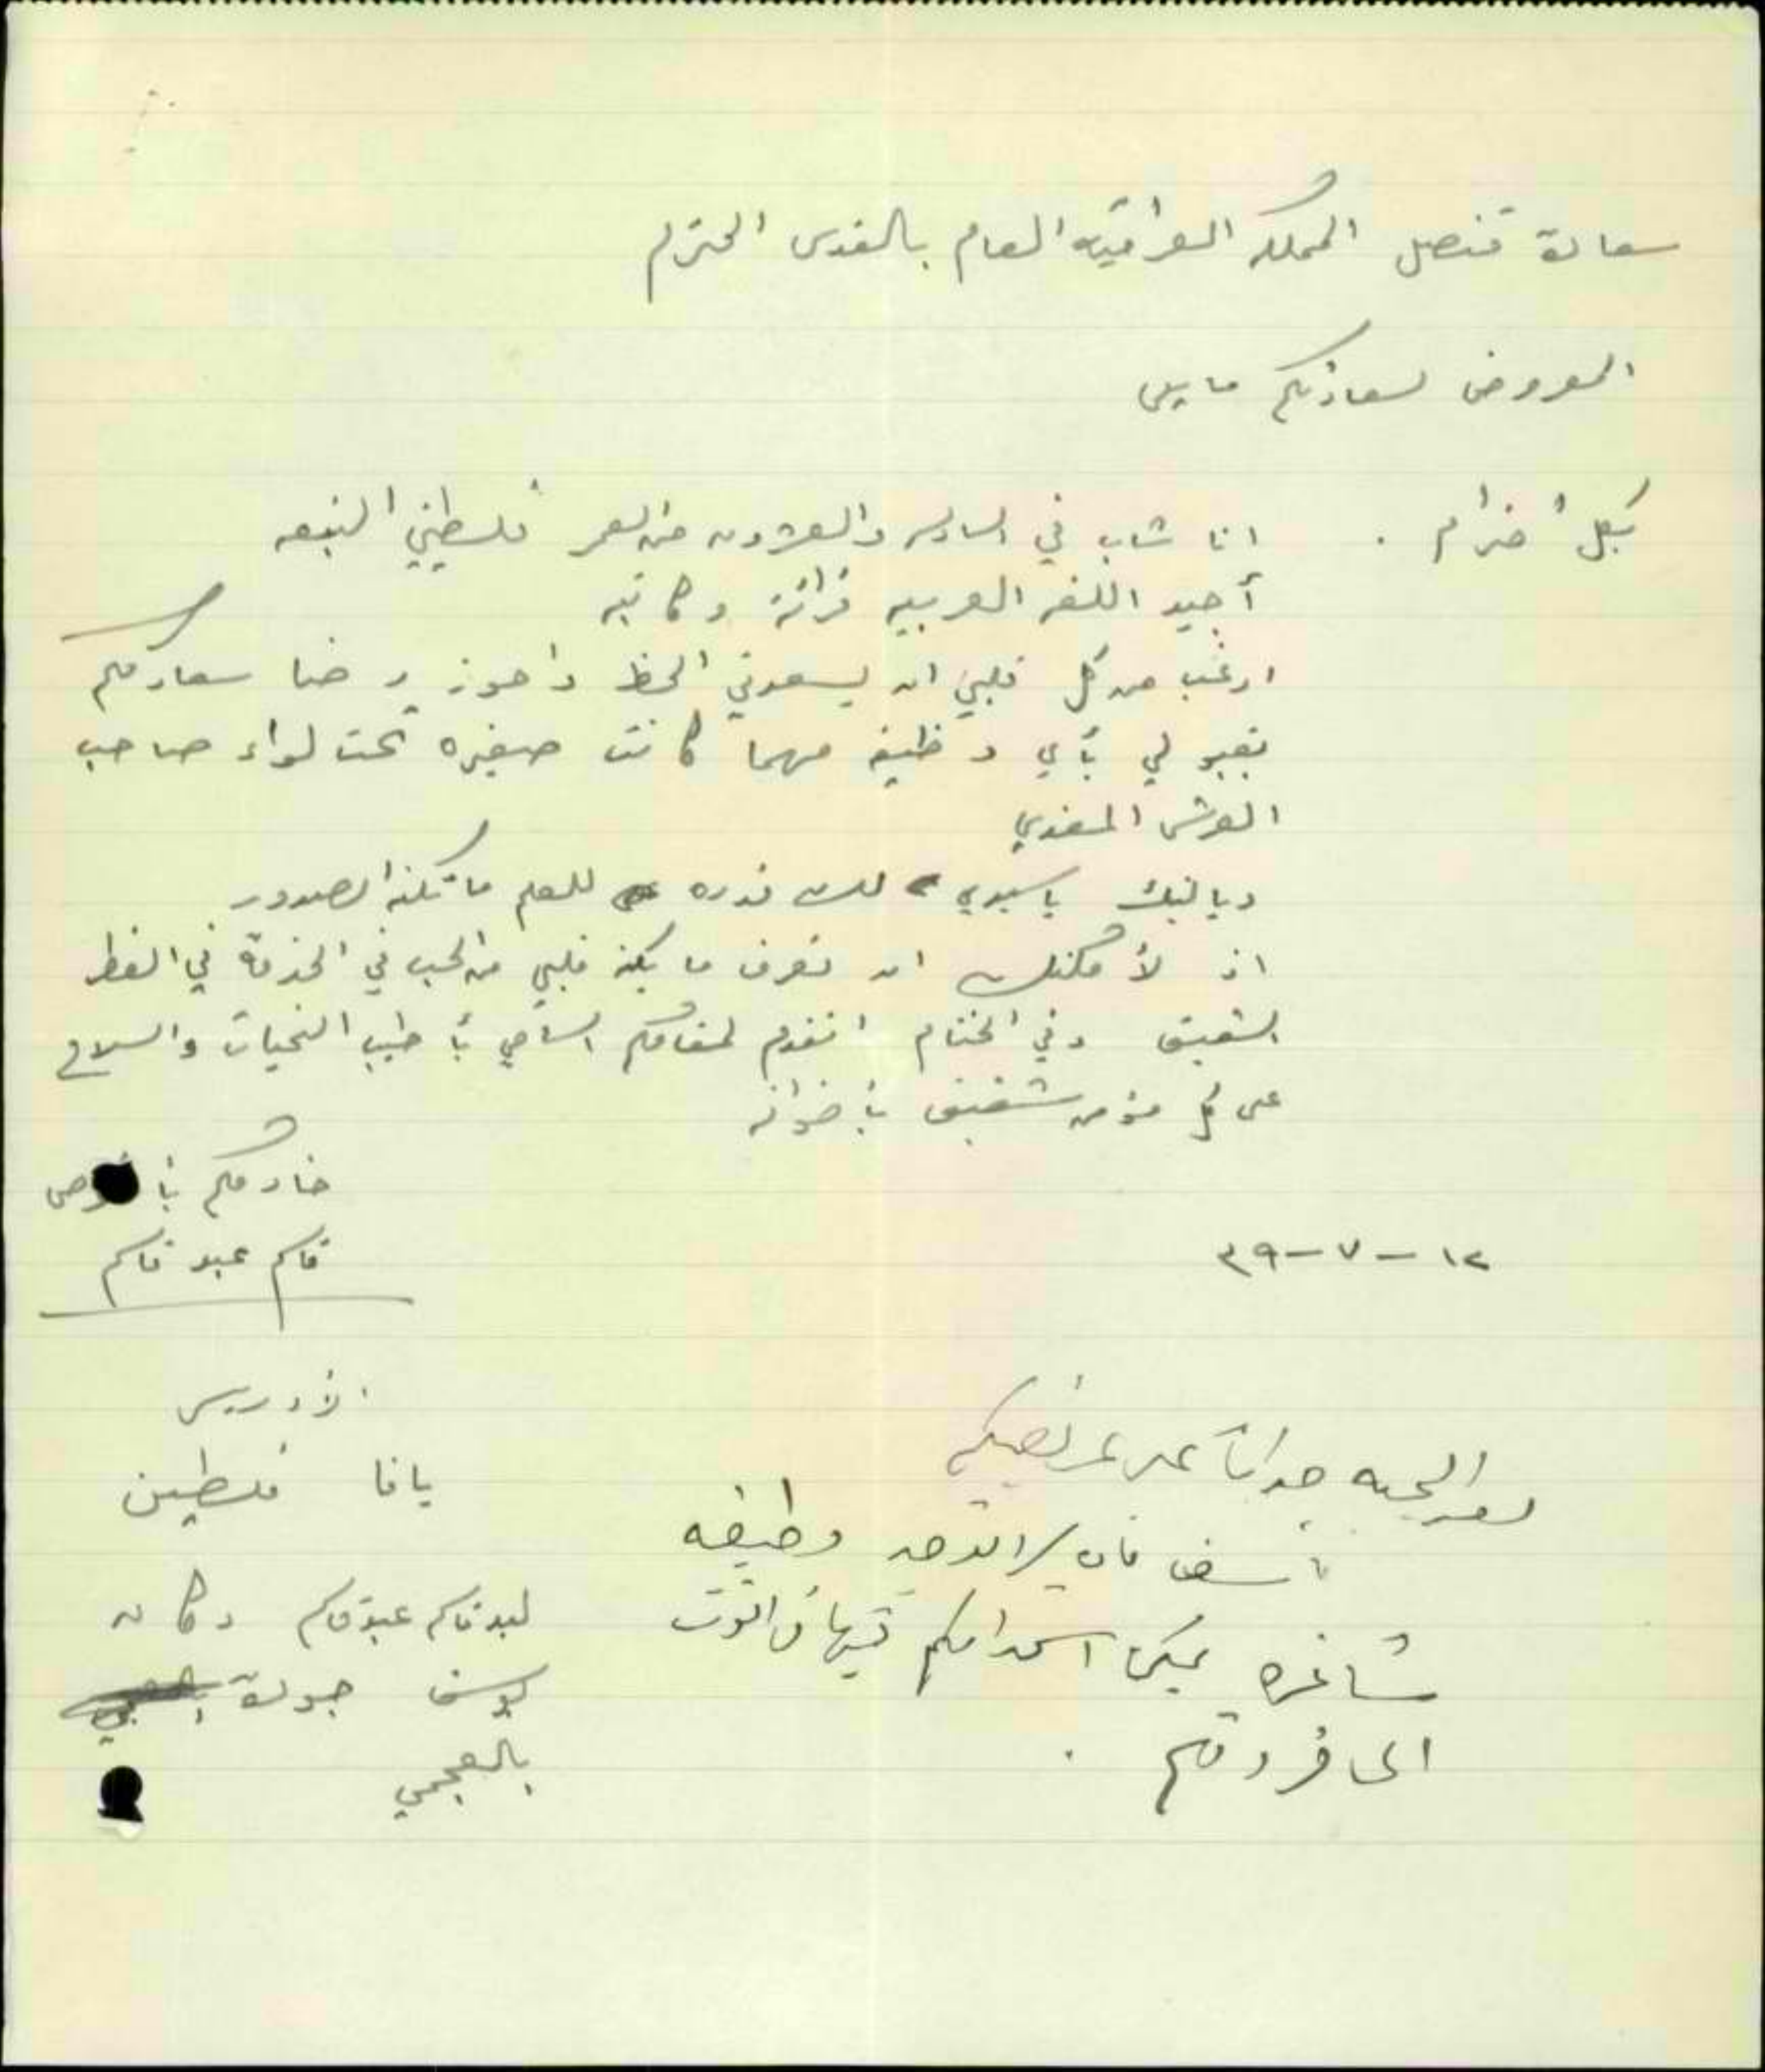 سعادة قنصل المملكه العراقيه العام بالقدس المحترم
المعروض لسعادتكم مايلي
بكل أحترام . انا شاب في السادسه والعشرون من العمر فلسطيني التبعه
أجيد اللغه العربيه قرائة وكاتبه
ارغب من كل قلبي ان يسعدني الحظ واحوز رضا سعادتكم
بقبولي بأي وظيفه مهما كانت صغيره تحت لواء صاحب
العرش المفدي
وياليتك ياسيدي لك قدره للعلم ماتكنه الصدور
اذ لأمكنك ان تعرف ما يكنه قلبي من الحب في الخدمة في القطر
الشقيق وفي الختام اتقدم لمقامكم السامي بأطيب التحيات والسلام
على كل مؤمن شقيق بأخوانه
خادمكم
قاسم عبد قاسم
١٢-٧-٣٩
الأدريس
يافا فلسطين
ليد قاسم عبد قاسم دكان
يوسف جودة
بالعجمي
بعد التحيه جوابا على عريضتكم
نأسف فانه لا توجد وظيفه
شاغره يمكن استخدامكم فيها